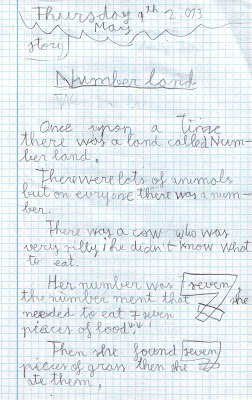 Thursday 9th 2013
May
story
Number land
Once upon a time
there was a land called Num-
ber land.
There were lots of animals
but on everyone there was a num-
ber.
There was a cow who was
very silly he didn't know what
to eat.
Her number was seven,
the number ment that she
needed to eat 7 seven
pieces of food.
Then she found seven
pieces of grass then she
ate them.